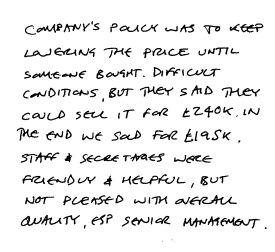 COMPANY'S POLICY WAS TO KEEP
LOWERING THE PRICE UNTIL
SOMEONE BOUGHT. DIFFICULT
CONDITIONS, BUT THEY SAID THEY
COULD SELL IT FOR £240K. IN
THE END WE SOLD FOR £195K.
STAFF & SECRETARIES WERE
FRIENDLY & HELPFUL, BUT
NOT PLEASED WITH OVERALL
QUALITY, ESP SENIOR MANAGEMENT.